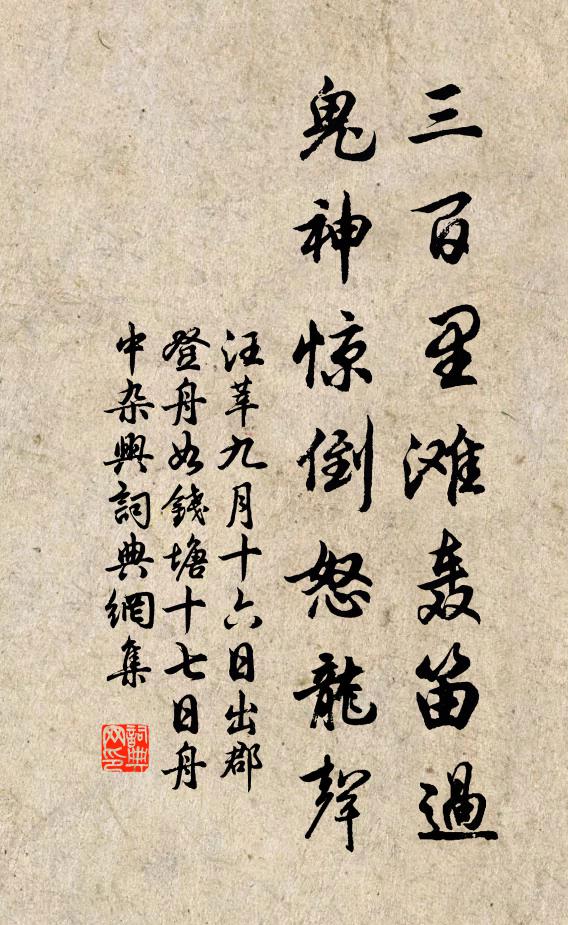 三百里滩轰笛過
鬼神惊倒怒龍聲
汪莘九月十六日出郡
登舟如錢塘十七日舟
中杂興詞典網集
詞典网印